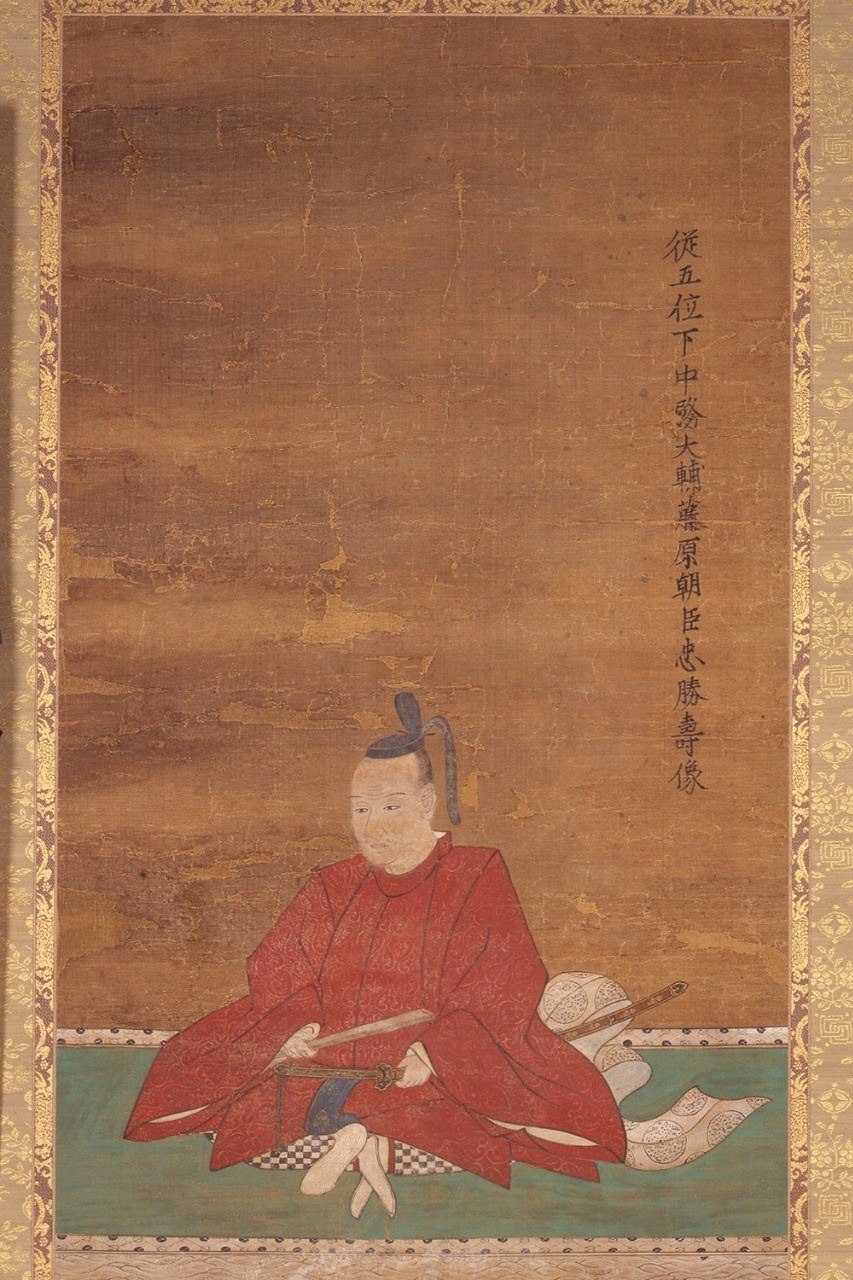 従五位下中務大輔藤原朝臣忠勝壽像